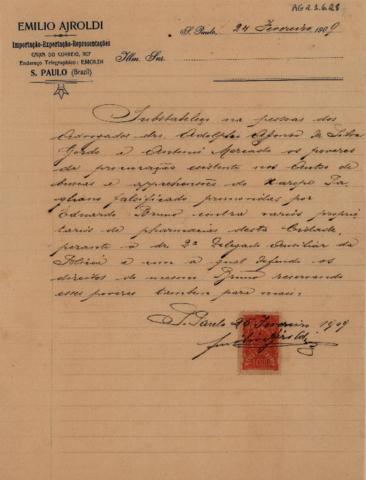 EMILIO AJROLDI
Importação-Exportação-Representações
CAIXA DO CORREIO, 907
Endereço Telegraphico: EMOLDI
S. PAULO (Brazil)
S. Paulo, 24 Fevereiro 1909
Illm. Snr.
Substabeleço na pessoas dos
Advogados drs. Adolpho Affonso da Silva
Gordo e Antonio Mercado os poderes
da procuração existente nos Autos de
buscas e apprehensões do Xarope Pa-
gliano falsificado promovidas por
Eduardo Bruno contra varios propri-
tarios de pharmacias desta Cidade,
perante o dr. 2º Delegado Auxiliar da
Policia e com a qual defendo os
direitos do mesmo Bruno reservando
esses poderes tambem para mim.
S. Paulo 26 Fevereiro 1909